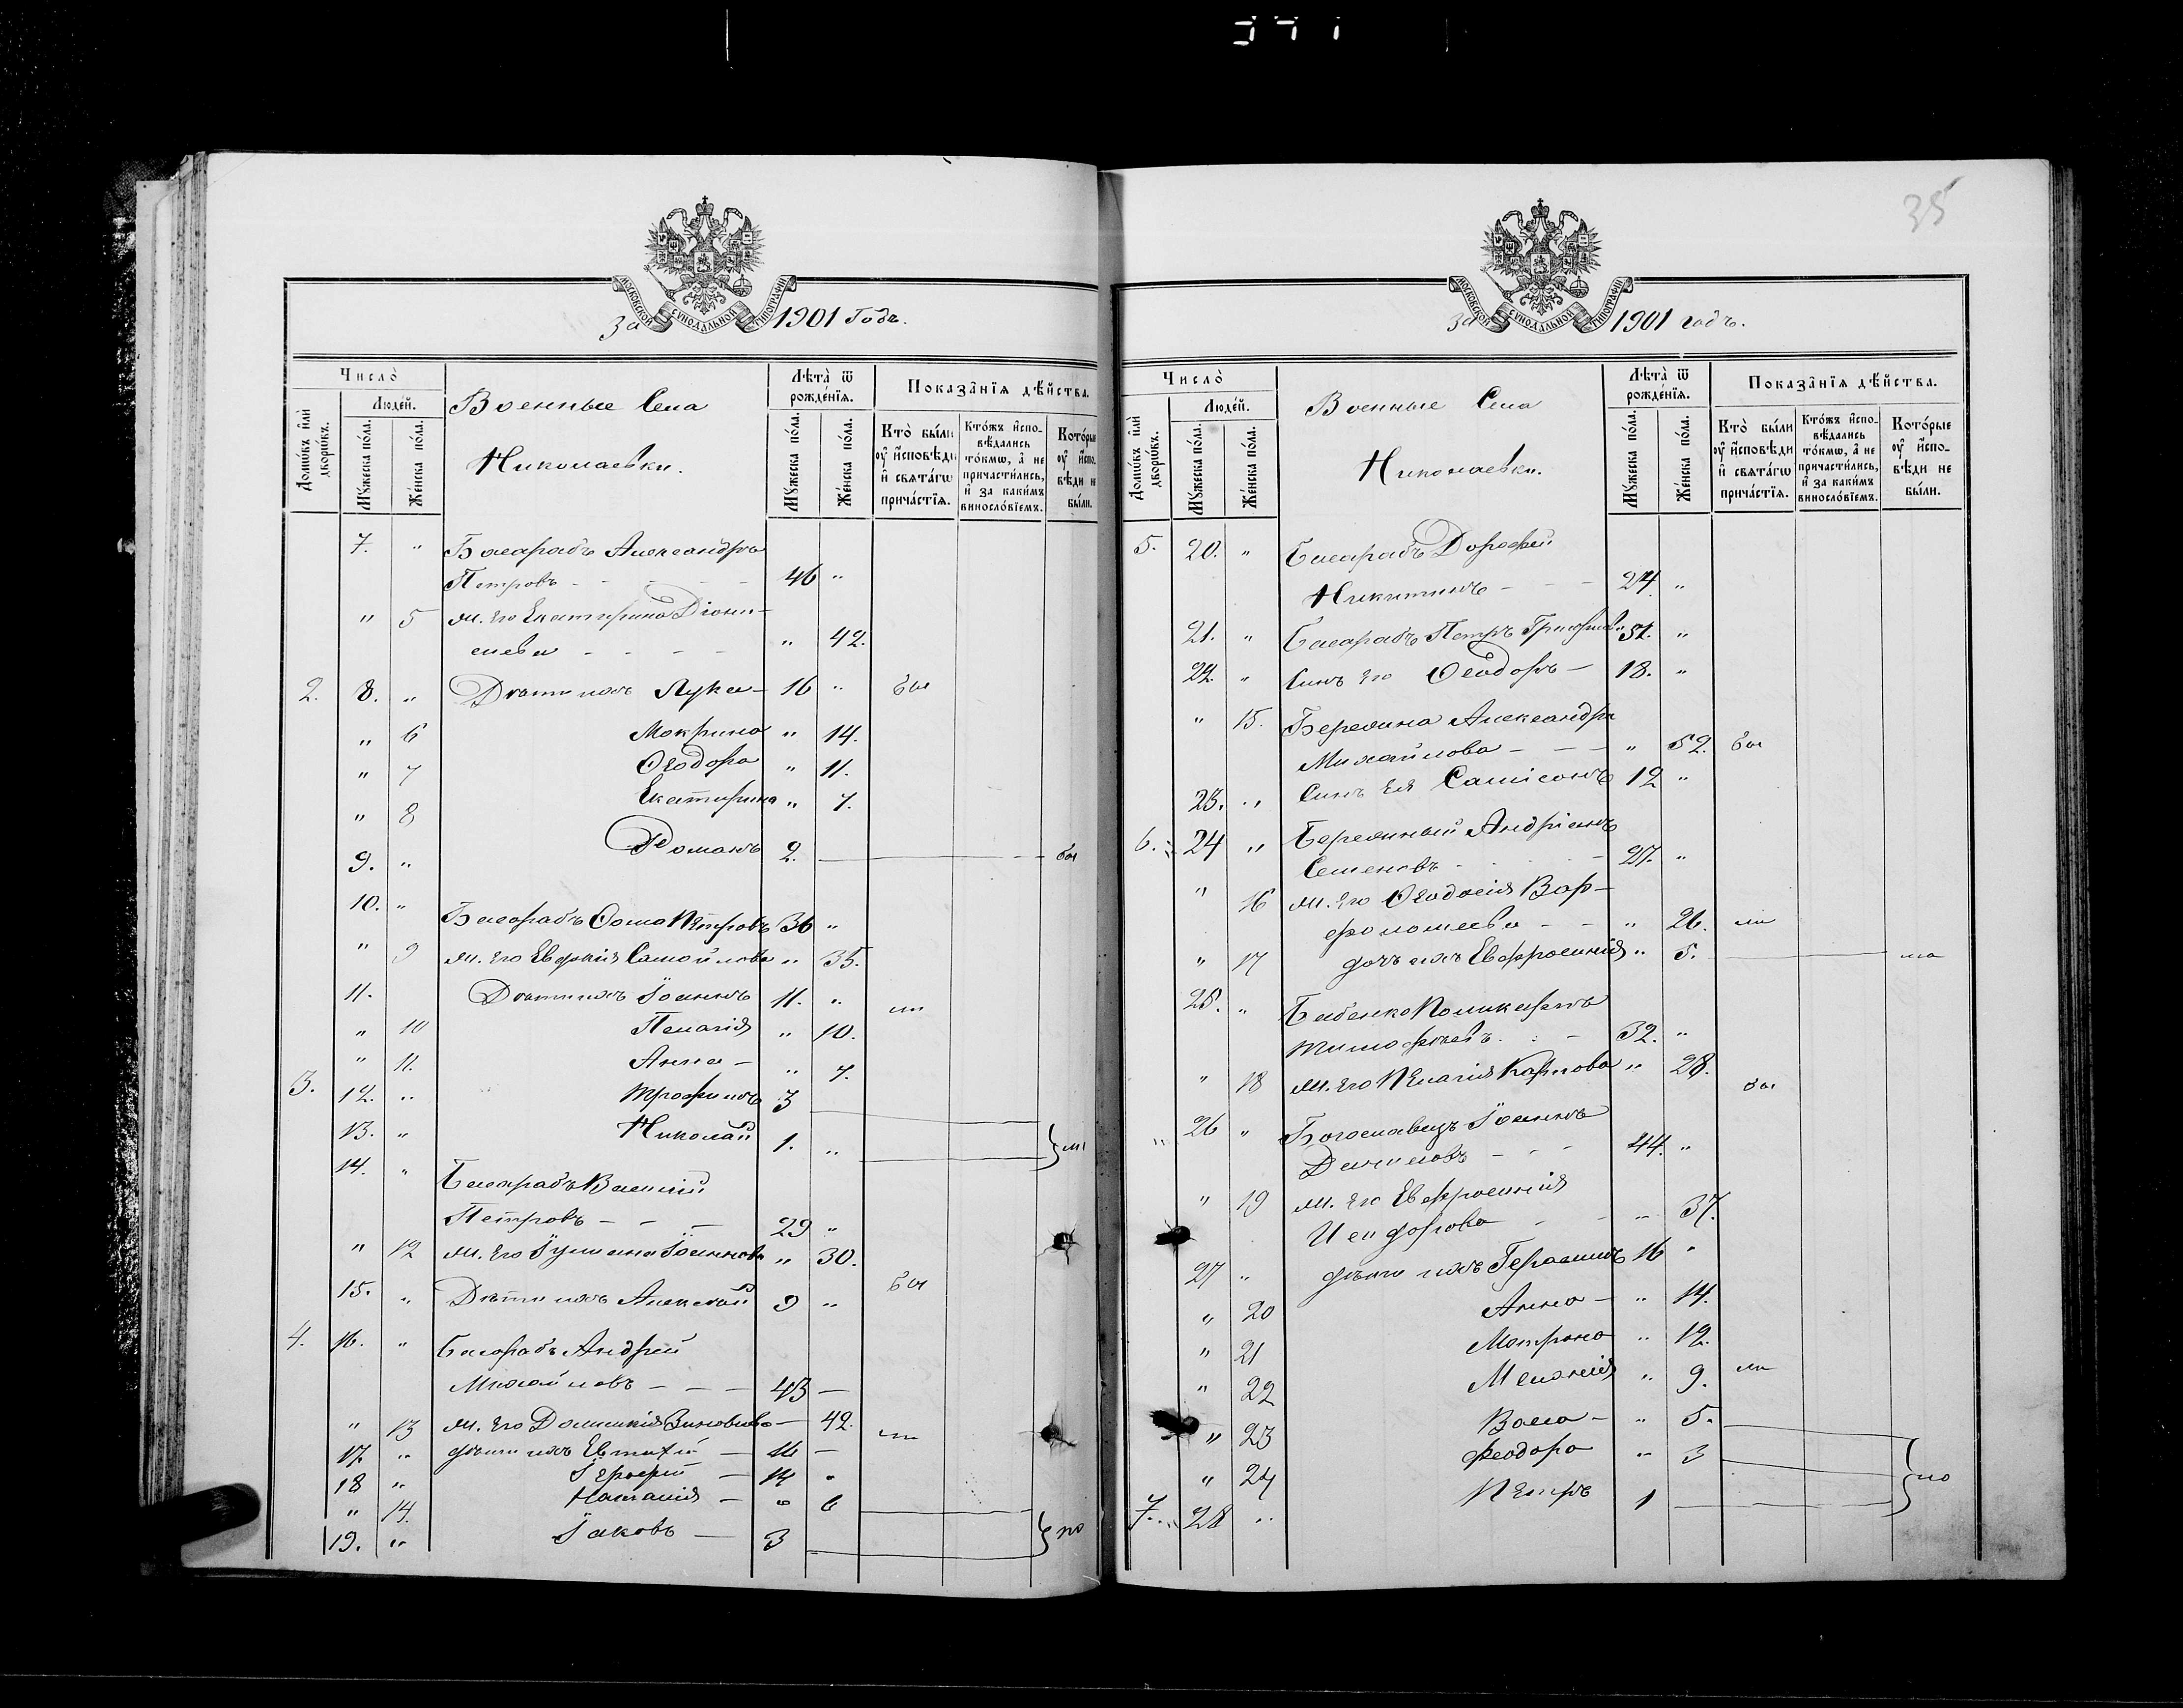 35
МОСКОВСКОЙ СѴНОДАЛЬНОЙ ТИПОГРАФІИ
За 1901 Годъ.
Число̀
Домѡ́въ и҆лѝ дворѡ́въ.
Люде́й.
Мꙋ́жеска по́ла.
Же́нска по́ла.
Военные Села
Николаевки.
Лѣта̀ ѿ рожде́нїѧ.
Мꙋ́жеска по́ла.
Же́нска по́ла.
Показа̑нїѧ дѣ́йства.
Кто̀ бы́ли ᲂу҆ и҆сповѣ́ди и҆ свѧта́гѡ прича́стїѧ.
Кто́жъ и҆сповѣ́дались то́кмѡ, а҆ не причасти́лись, и҆ за каки́мъ виносло́вїемъ.
Кото́рые ᲂу҆ и҆сповѣ́ди не бы́ли.
7. " Басарабъ Александръ
Петровъ - - - 46 "
" 5 ж. его Екатерина Діони-
сиева - - - - " 42.
2. 8. " Дѣти ихъ Лука - 16 " бы
" 6 Мокрина " 14.
" 7 Ѳеодора " 11.
" 8 Екатерина " 7.
9. " Романъ 2. бы
10. " Басарабъ Ѳома Петровъ 36 "
" 9 ж. его Евфимія Самойлова " 35.
11. Дѣти ихъ Іоаннъ 11. " ли
" 10 Пелагія " 10.
" 11. Анна - " 7.
3. 12. " Трофимъ 3
13. " Николай 1. " } ли
14. " Басарабъ Василій
Петровъ - - - 29 "
" 12 ж. его Іуліана Іоаннова " 30.
15. " Дѣти ихъ Алексѣй 9 " бы
4. 16. " Басарабъ Андрей
Михайловъ - - - 43 -
" 13 ж. его Домникія Зиновьева - 42. ли
17. " дѣти ихъ Евтихій - 16 -
18 " Іерофей - 14 "
" 14. Наталія - " 6
19. " Іаковъ - 3 } но
МОСКОВСКОЙ СѴНОДАЛЬНОЙ ТИПОГРАФІИ
За 1901 годъ.
Число̀
Домѡ́въ и҆лѝ дворѡ́въ.
Люде́й.
Мꙋ́жеска по́ла.
Же́нска по́ла.
Военные Села
Николаевки.
Лѣта̀ ѿ рожде́нїѧ.
Мꙋ́жеска по́ла.
Же́нска по́ла.
Показа̑нїѧ дѣ́йства.
Кто̀ бы́ли ᲂу҆ и҆сповѣ́ди и҆ свѧта́гѡ прича́стїѧ.
Кто́жъ и҆сповѣ́дались то́кмѡ, а҆ не причасти́лись, и҆ за каки́мъ виносло́вїемъ.
Кото́рые ᲂу҆ и҆сповѣ́ди не бы́ли.
5. 20. " Басарабъ Дорофей
Никитинъ - - - 24. "
21. " Басарабъ Петръ Григорьевъ 51. "
22. " Сынъ его Ѳеодоръ - 18. "
" 15. Березина Александра
Михайлова - - - " 52. бы
23. " Сынъ ея Самсонъ 12 "
6. 24 " Березиный Андріанъ
Семеновъ - - - 27. "
" 16 ж. его Ѳеодосія Вар-
фоломеева - - " 26. ли
" 17 дочь ихъ Евфросинія " 5. ла
25. " Бабенко Поликарпъ
Тимофѣевъ. - - 32. "
" 18 ж. его Пелагія Карпова " 28. бы
" 26 " Богославецъ Іоаннъ
Даниловъ - - - 44. "
" 19 ж. его Евфросинія
Исидорова - - " 37.
27 " дѣти ихъ Герасимъ 16 "
" 20 Анна - " 14.
" 21 Матрона " 12.
" 22 Меланія " 9. ли
" 23 Васса - " 5.
" 24 Феодора " 3 } но
7. 28 " Петръ 1